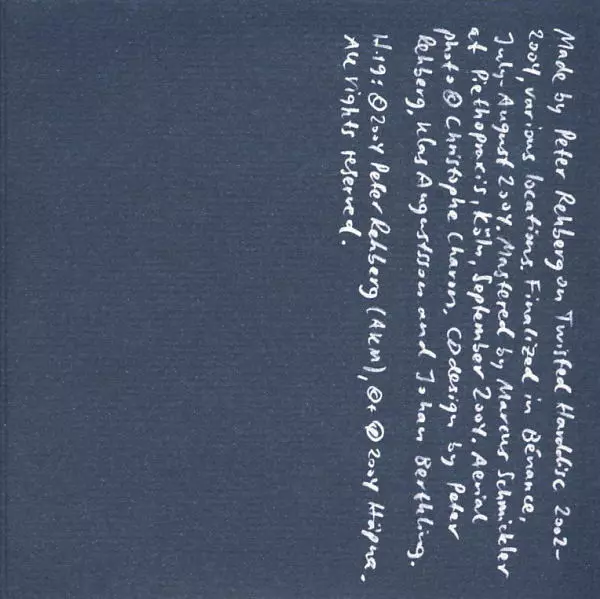 Made by Peter Rehberg on Twisted Harddisc 2002-
2004, various locations. Finalized in Bénance,
July-August 2004. Mastered by Marcus Schmickler
at Piethopraxis, Köln, September 2004. Aerial
photo © Christophe Charon, CD design by Peter
Rehberg, Klas Augustsson and Johan Berthling.
H.19: © 2004 Peter Rehberg (AKM), ©+℗ 2004 Häpna.
All rights reserved.